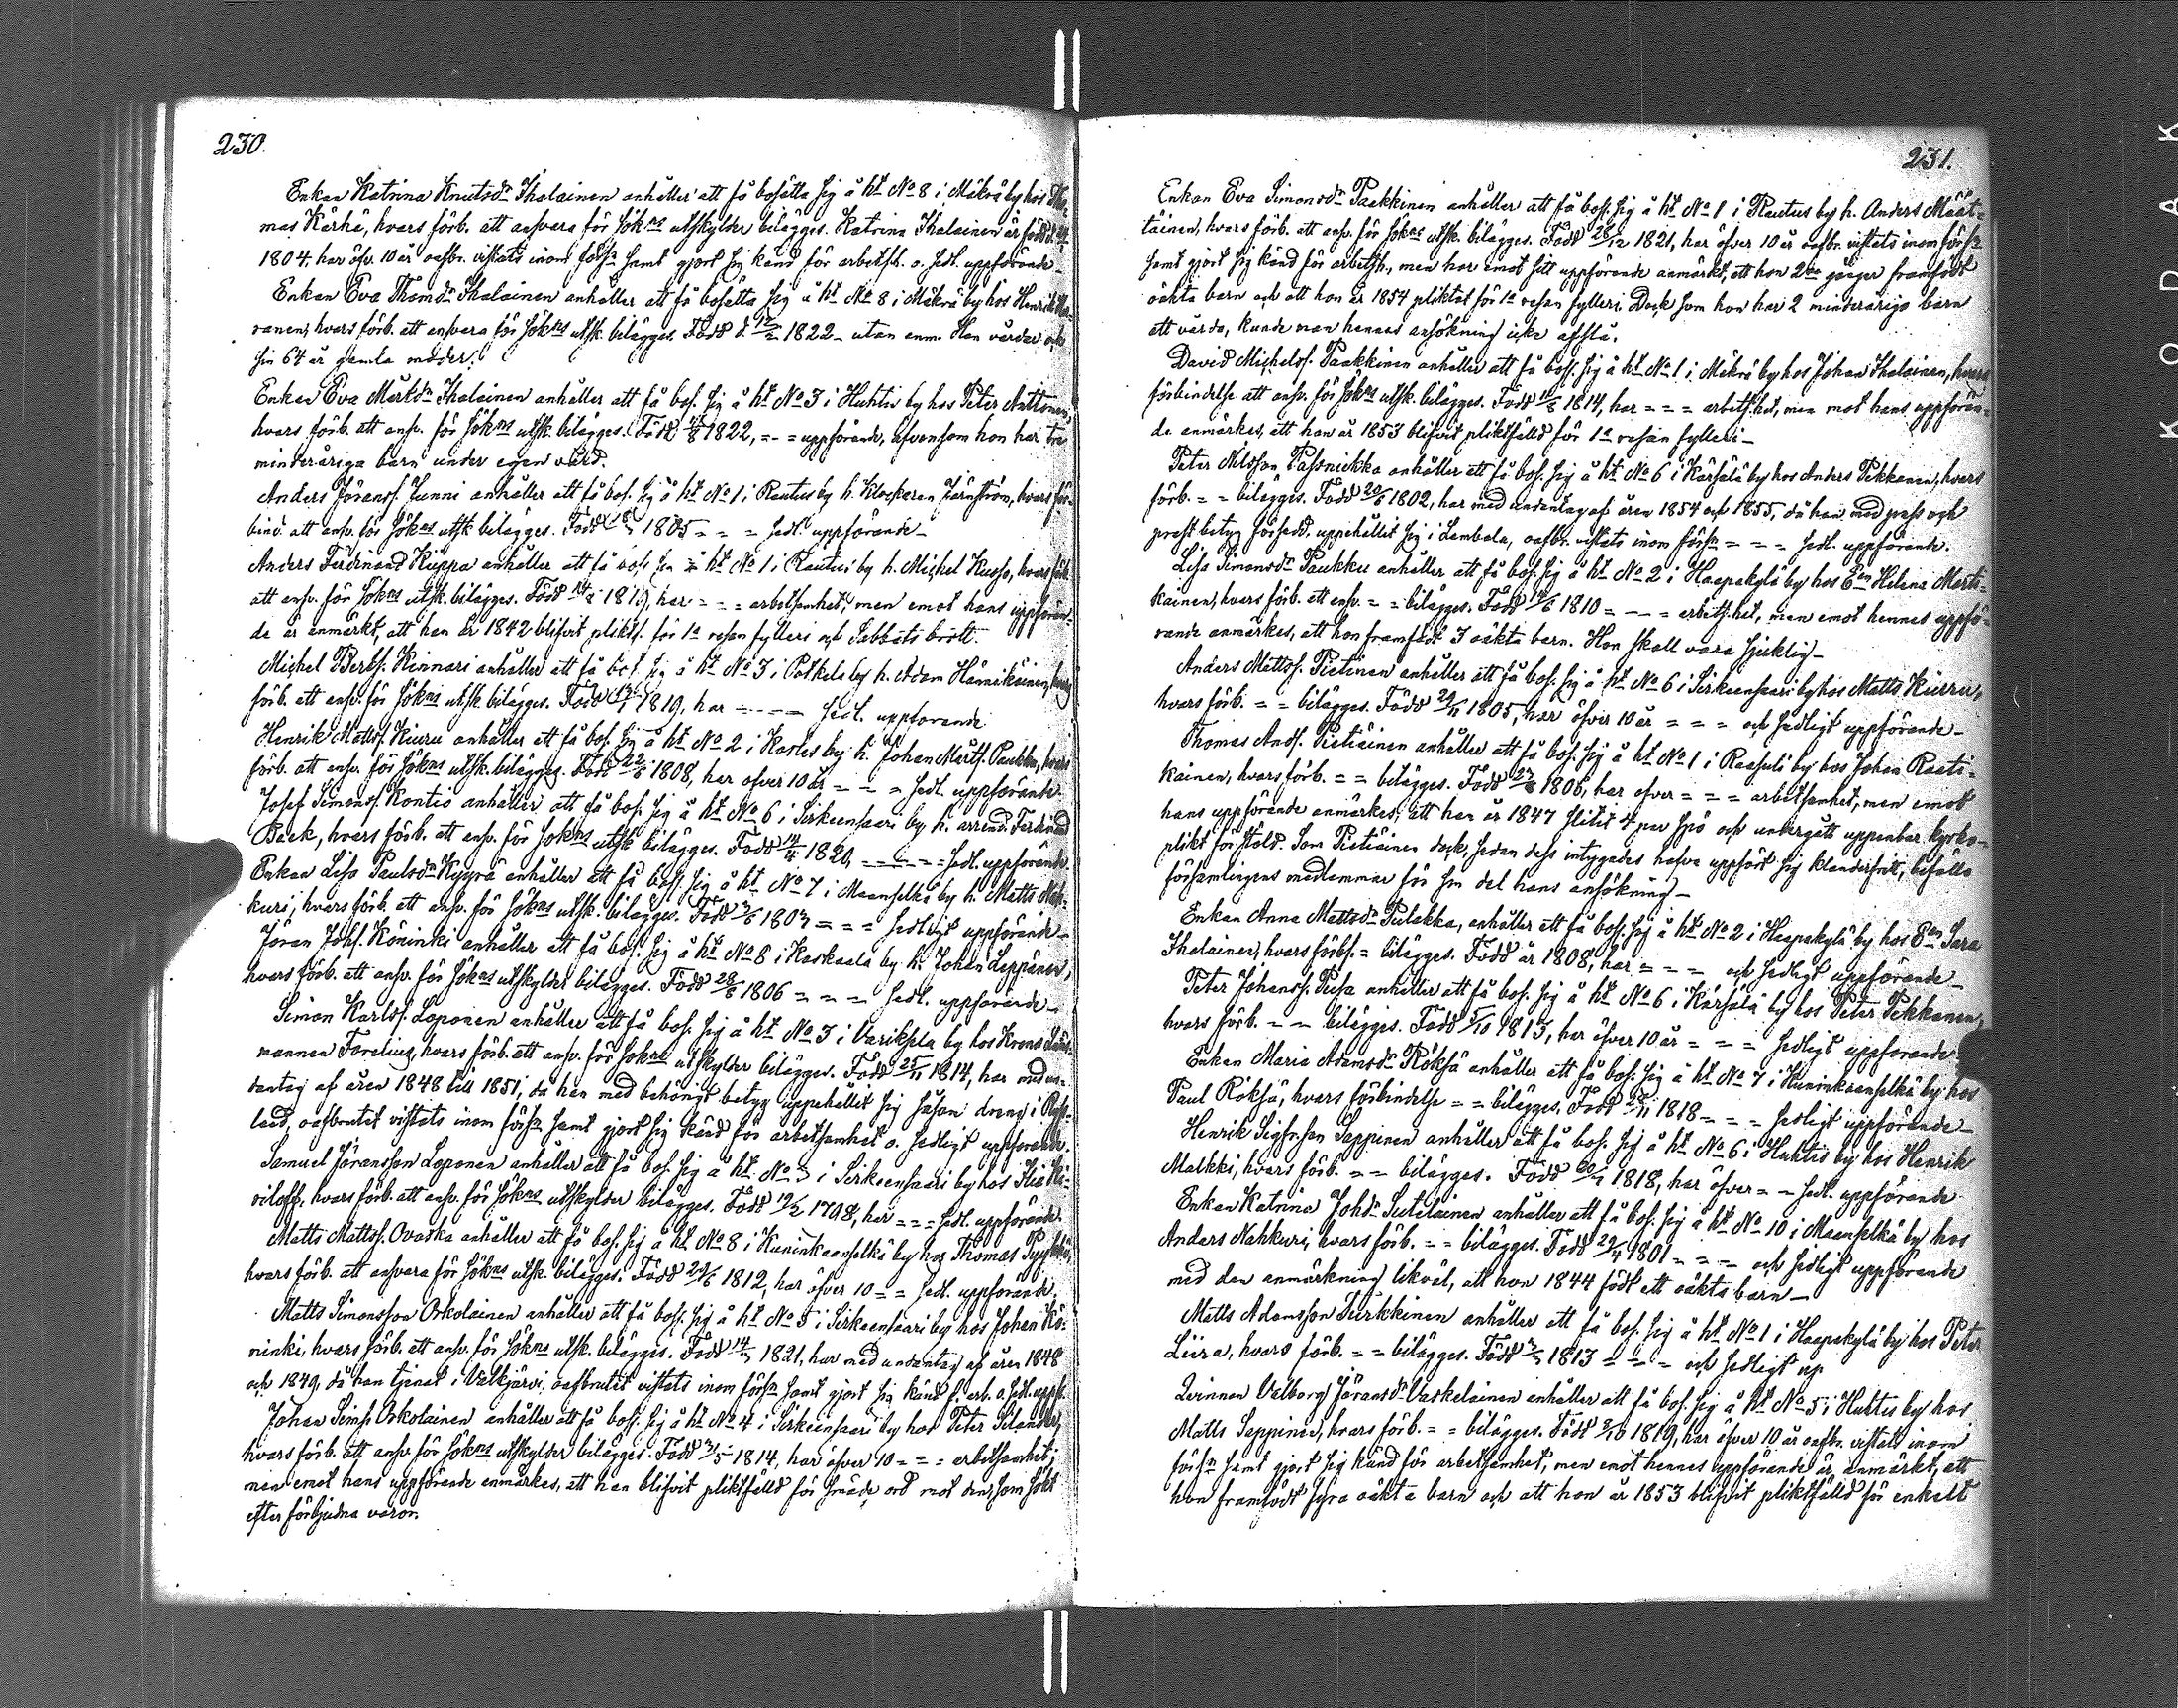 230.
Enkan Katrina Knutsdr Ihalainen anhåller att få bosätta sig å ht No 8 i Mäkrä by hos Tho-
mas Kärhä, hvars förb. att ansvara för sökns utskylder bilägges. Katrina Ihalainen är född
1804. har öfv. 10 år oafbr. vistats inom förs:n samt gjort sig känd för arbetsh. o. sedl. uppförande_
Enkan Eva Thomdr Ihalainen anhåller att få bosätta sig å ht No 8 i Mäkrä by hos Henrik
ranen, hvars förb. att ansvara för sökns utsk. bilägges. Född d. 12/2 1822_ utan anm. Hon vårdar ock
sin 64 år gamla moder.
Enkan Eva Märtdr Ihalainen anhåller att få bos. sig å ht No 3 i Huhtis by hos Peter Anttonen,
hvars förb. att ansv. för sökns utsk. bilägges. Född 1822, = - = uppförande, äfvensom hon har tre
minderåriga barn under egen vård.
Anders Göranss. Junni anhåller att få bos. sig å ht No 1 i Rautus by h. Klockaren Järnström, hvars för-
bind. att ansv. för sökns utsk. bilägges. Född 1805 = = = sedl. uppförande_
Anders Ferdinand Kuppa anhåller att få bos. sig å ht No 1 i Rautus by h. Michel Kuosa, hvars förb.
att ansv. för sökns utsk. bilägges. Född 181, har = = = arbetsamhet, men emot hans uppföran-
de är anmärkt, att han år 1842 blifvit pliktf. för 1a resan fylleri och Sabbats brott.
Michel Bertss. Kinnari anhåller att få bos. sig å ht No 3 i Potkela by h. Adam Hännikäinen, hvars
förb. att ansv. för sökns utsk. bilägges. Född 1819, har = - - = sedl. uppförande
Henrik Mattss. Kiuru anhåller att få bos. sig å ht No 2 i Korles by h. Johan Mårtss. Paukku, hvars
förb. att ansv. för sökns utsk. bilägges. Född 22/6 1808, har öfver 10 år = = = sedl. uppförande
Josef Simonss. Kontio anhåller att få bos. sig å ht No 6 i Sirkeensaari by h. arrend. Ferdinand
Beck, hvars förb. att ansv. för sökns utsk. bilägges. Född 14/4 1820, = = = = = sedl. uppförande.
Enkan Lisa Paulsdr Kyyrä anhåller att få bos. sig å ht No 7 i Maanselkä by h. Matts Nah-
kuri, hvars förb. att ansv. för sökns utsk. bilägges. Född 3/6 1803 = = = sedligt uppförande_
Jöran Johs. Köninki anhåller att få bos. sig å ht No 8 i Kaskaala by h. Johan Leppänen,
hvars förb. att ansv. för sökns utskylder bilägges. Född 28/8 1806 = = = sedl. uppförande_
Simon Karlss. Loponen anhåller att få bos. sig å ht No 3 i Varikselä by hos Krono Läns-
mannen Forelius, hvars förb. att ansv. för sökns utskylder bilägges. Född 25/11 1814, har med un-
dantag af åren 1848 till 1851, då han med behörigt betyg uppehållit sig såsom dräng i Ryss-
land, oafbrutet vistats inom förs:n samt gjort sig känd för arbetsamhet o. sedligt uppförande.
Samuel Jöransson Loponen anhåller att få bos. sig å ht No 3 i Sirkeensaari by hos Ilia Ki-
riloff, hvars förb. att ansv. för sökns utskylder bilägges. Född 19/2 1798, har = = = sedl. uppförande
Matts Mattss. Ovaska anhåller att få bos. sig å ht No 8 i Kuninkaanselkä by hos Thomas
hvars förb. att ansvara för sökns utsk. bilägges. Född 29/6 1812, har öfver 10 = = sedl. uppförande.
Matts Simonsson Orkolainen anhåller att få bos. sig å ht No 5 i Sirkeensaari by hos Johan Kö-
ninki, hvars förb. att ansv. för sökns utsk. bilägges. Född 1821, har med undantag af åren 1848
och 1849, då han tjenat i Valkjärvi, oafbrutet vistats inom förs:n samt gjort sig känd f. arb. o. sedl. uppf.
Johan Sims. Orkolainen anhåller att få bos. sig å ht No 4 i Sirkeensaari by hos Peter Silander,
hvars förb. att ansv. för sökns utskylder bilägges. Född 3/5 1814, har öfver 10 = = = arbetsamhet;
men emot hans uppförande anmärkes, att han blifvit pliktfälld för smäde ord mot den, som sökt
efter förbjudna varor.
231.
Enkan Eva Simonsdr Paakkinen anhåller att få bos. sig å ht No 1 i Rautus by h. Anders Määt-
täinen, hvars förb. att ansv. för sökns utsk. bilägges. Född 28/12 1821, har öfver 10 år oafbr. vistats inom förs:n
samt gjort sig känd för arbetsh., men har emot sitt uppförande anmärkt, att hon 2ne gånger framfödt
oäkta barn och att hon år 1854 pliktat för 1a resan fylleri. Dock som hon har 2 minderåriga barn
att vårda, kunde man hennes ansökning icke afslå.
David Michelss. Paakkinen anhåller att få bos. sig å ht No 1 i Mäkrä by hos Johan Ihalainen, hvars
förbindelse att ansv. för sökns utsk. bilägges. Född 1814, har = = = arbetsht, men mot hans uppföran-
de anmärkes, att han år 1853 blifvit pliktfälld för 1a resan fylleri_
Peter Nilsson Passinikka anhåller att få bos. sig å ht No 6 i Kärsälä by hos Anders Pekkanen, hvars
förb. = = bilägges. Född 20/6 1802, har med undantag af åren 1854 och 1855, då han med pass och
prest betyg försedd, uppehållit sig i Lembala, oafbr. vistats inom förs:n = = = sedl. uppförande.
Lisa Simonsdr Paukku anhåller att få bos. sig å ht No 2 i Haapakylä by hos En Helena Marti-
kainen, hvars förb. att ansv. = = bilägges. Född 1810 = - - = arbetsht, men emot hennes uppfö-
rande anmärkes, att hon framfödt 3 oäkta barn. Hon skall vara sjuklig_
Anders Mattss. Pietinen anhåller att få bos. sig å ht No 6 i Sirkeensaari by hos Matts Kiurru,
hvars förb. = = bilägges. Född 29/11 1805, har öfver 10 år = = = och sedligt uppförande_
Thomas Ands. Pietiäinen anhåller att få bos. sig å ht No 1 i Raasuli by hos Johan Raati-
kainen, hvars förb. = = bilägges. Född 1806, har öfver = = = arbetsamhet, men emot
hans uppförande anmärkes, att han år 1847 slitit 4 par spö och undergått uppenbar kyrko-
plikt för stöld. Som Pietiäinen dock, sedan dess intygades hafva uppfört sig klanderfritt, bifölls
församlingens medlemmar för sin del hans ansökning_
Enkan Anna Mattsdr Pulakka, anhåller att få bos. sig å ht No 2 i Haapakylä by hos En Sara
Ihalainen, hvars förbs. = bilägges. Född år 1808, har = = = och sedligt uppförande_
Peter Johanss. Pusa anhåller att få bos. sig å ht No 6 i Kärsälä by hos Peter Pekkanen,
hvars förb. = = bilägges. Född 5/10 1813, har öfver 10 år = = = sedligt uppförande
Enkan Maria Adamsdr Röksä anhåller att få bos. sig å ht No 7 i Kuninkaanselkä by hos
Paul Röksä, hvars förbindelse = = bilägges. Född 1818 = = = sedligt uppförande_
Henrik Sigfrsson Seppinen anhåller att få bos. sig å ht No 6 i Huhtis by hos Henrik
Malkki, hvars förb. = = bilägges. Född 1818, har öfver = = sedl. uppförande
Enkan Katrina Johdr Sutelainen anhåller att få bos. sig å ht No 10 i Maanselkä by hos
Anders Nahkuri, hvars förb. = = bilägges. Född 29/4 1801 = = = och sedligt uppförande
med den anmärkning likväl, att hon 1844 födt ett oäkta barn_
Matts Adamsson Turkkinen anhåller att få bos. sig å ht No 1 i Haapakylä by hos Peter
Liira, hvars förb. = = bilägges. Född 1813 = = = och sedligt up.
Qvinnan Valborg Göransdr Vaskelainen anhåller att få bos. sig å ht No 5 i Huhtis by hos
Matts Seppinen, hvars förb. = = bilägges. Född 1819, har öfver 10 år oafbr. vistats inom
förs:n samt gjort sig känd för arbetsamhet, men emot hennes uppförande är anmärkt, att
hon framfödt fyra oäkta barn och att hon år 1853 blifvit pliktfälld för enkelt
KODAK